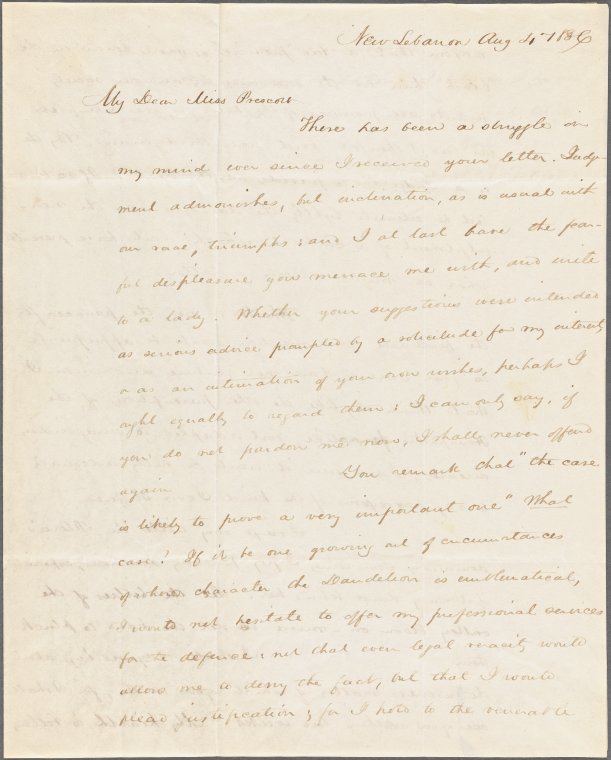 New Lebanon Aug 4th 1836
My Dear Miss Prescott
There has been a struggle in
my mind ever since I received your letter. Judg-
ment admonishes, but inclination, as is usual with
our race, triumphs; and I at last bare the fear-
ful displeasure you menace me with, and write
to a lady. Whether your suggestions were intended
as serious advice prompted by a solicitude for my interests
or as an intimation of your own wishes, perhaps I
ought equally to regard them; I can only say, if
you do not pardon me now, I shall never offend
again.
You remark that "the case
is likely to prove a very important one" What
case? If it be one growing out of circumstances
of whose character the Dandelion is emblematical,
I would not hesitate to offer my professional services
for the defence; not that even legal veracity would
allow me to deny the fact, but that I would
plead justification; for I hold to the venerable